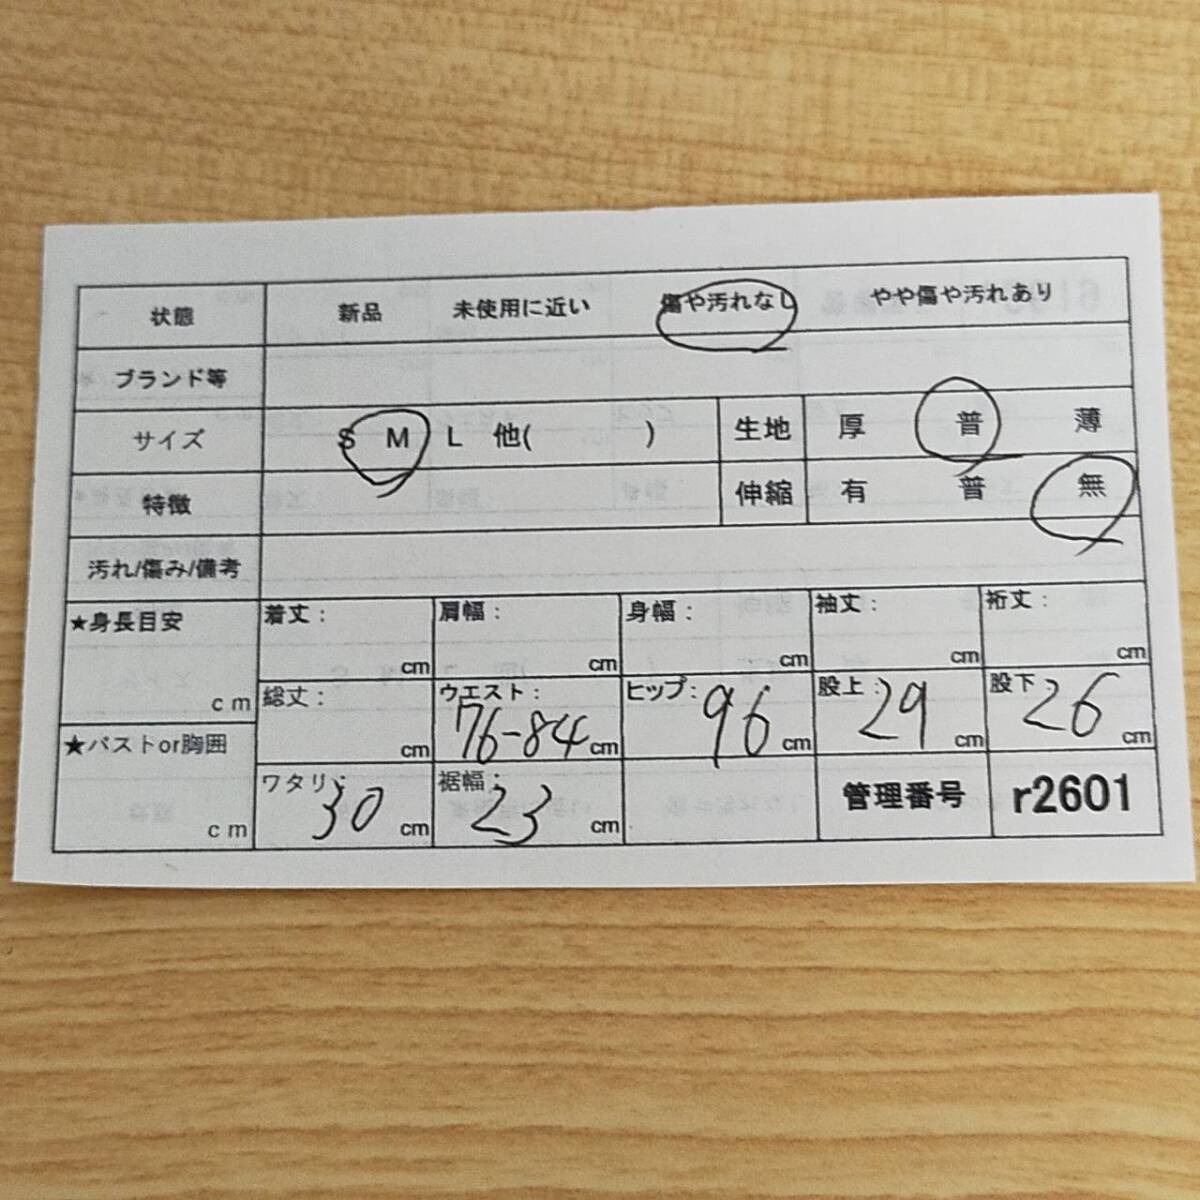 状態 新品 未使用に近い 傷や汚れなし やや傷や汚れあり
ブランド等
サイズ S M L 他( ) 生地 厚 普 薄
特徴 伸縮 有 普 無
汚れ/傷み/備考
★身長目安 cm
着丈: cm 肩幅: cm 身幅: cm 袖丈: cm 裄丈: cm
総丈: cm ウエスト: 76-84 cm ヒップ: 96 cm 股上: 29 cm 股下: 26 cm
★バストor胸囲 cm
ワタリ: 30 cm 裾幅: 23 cm 管理番号 r2601